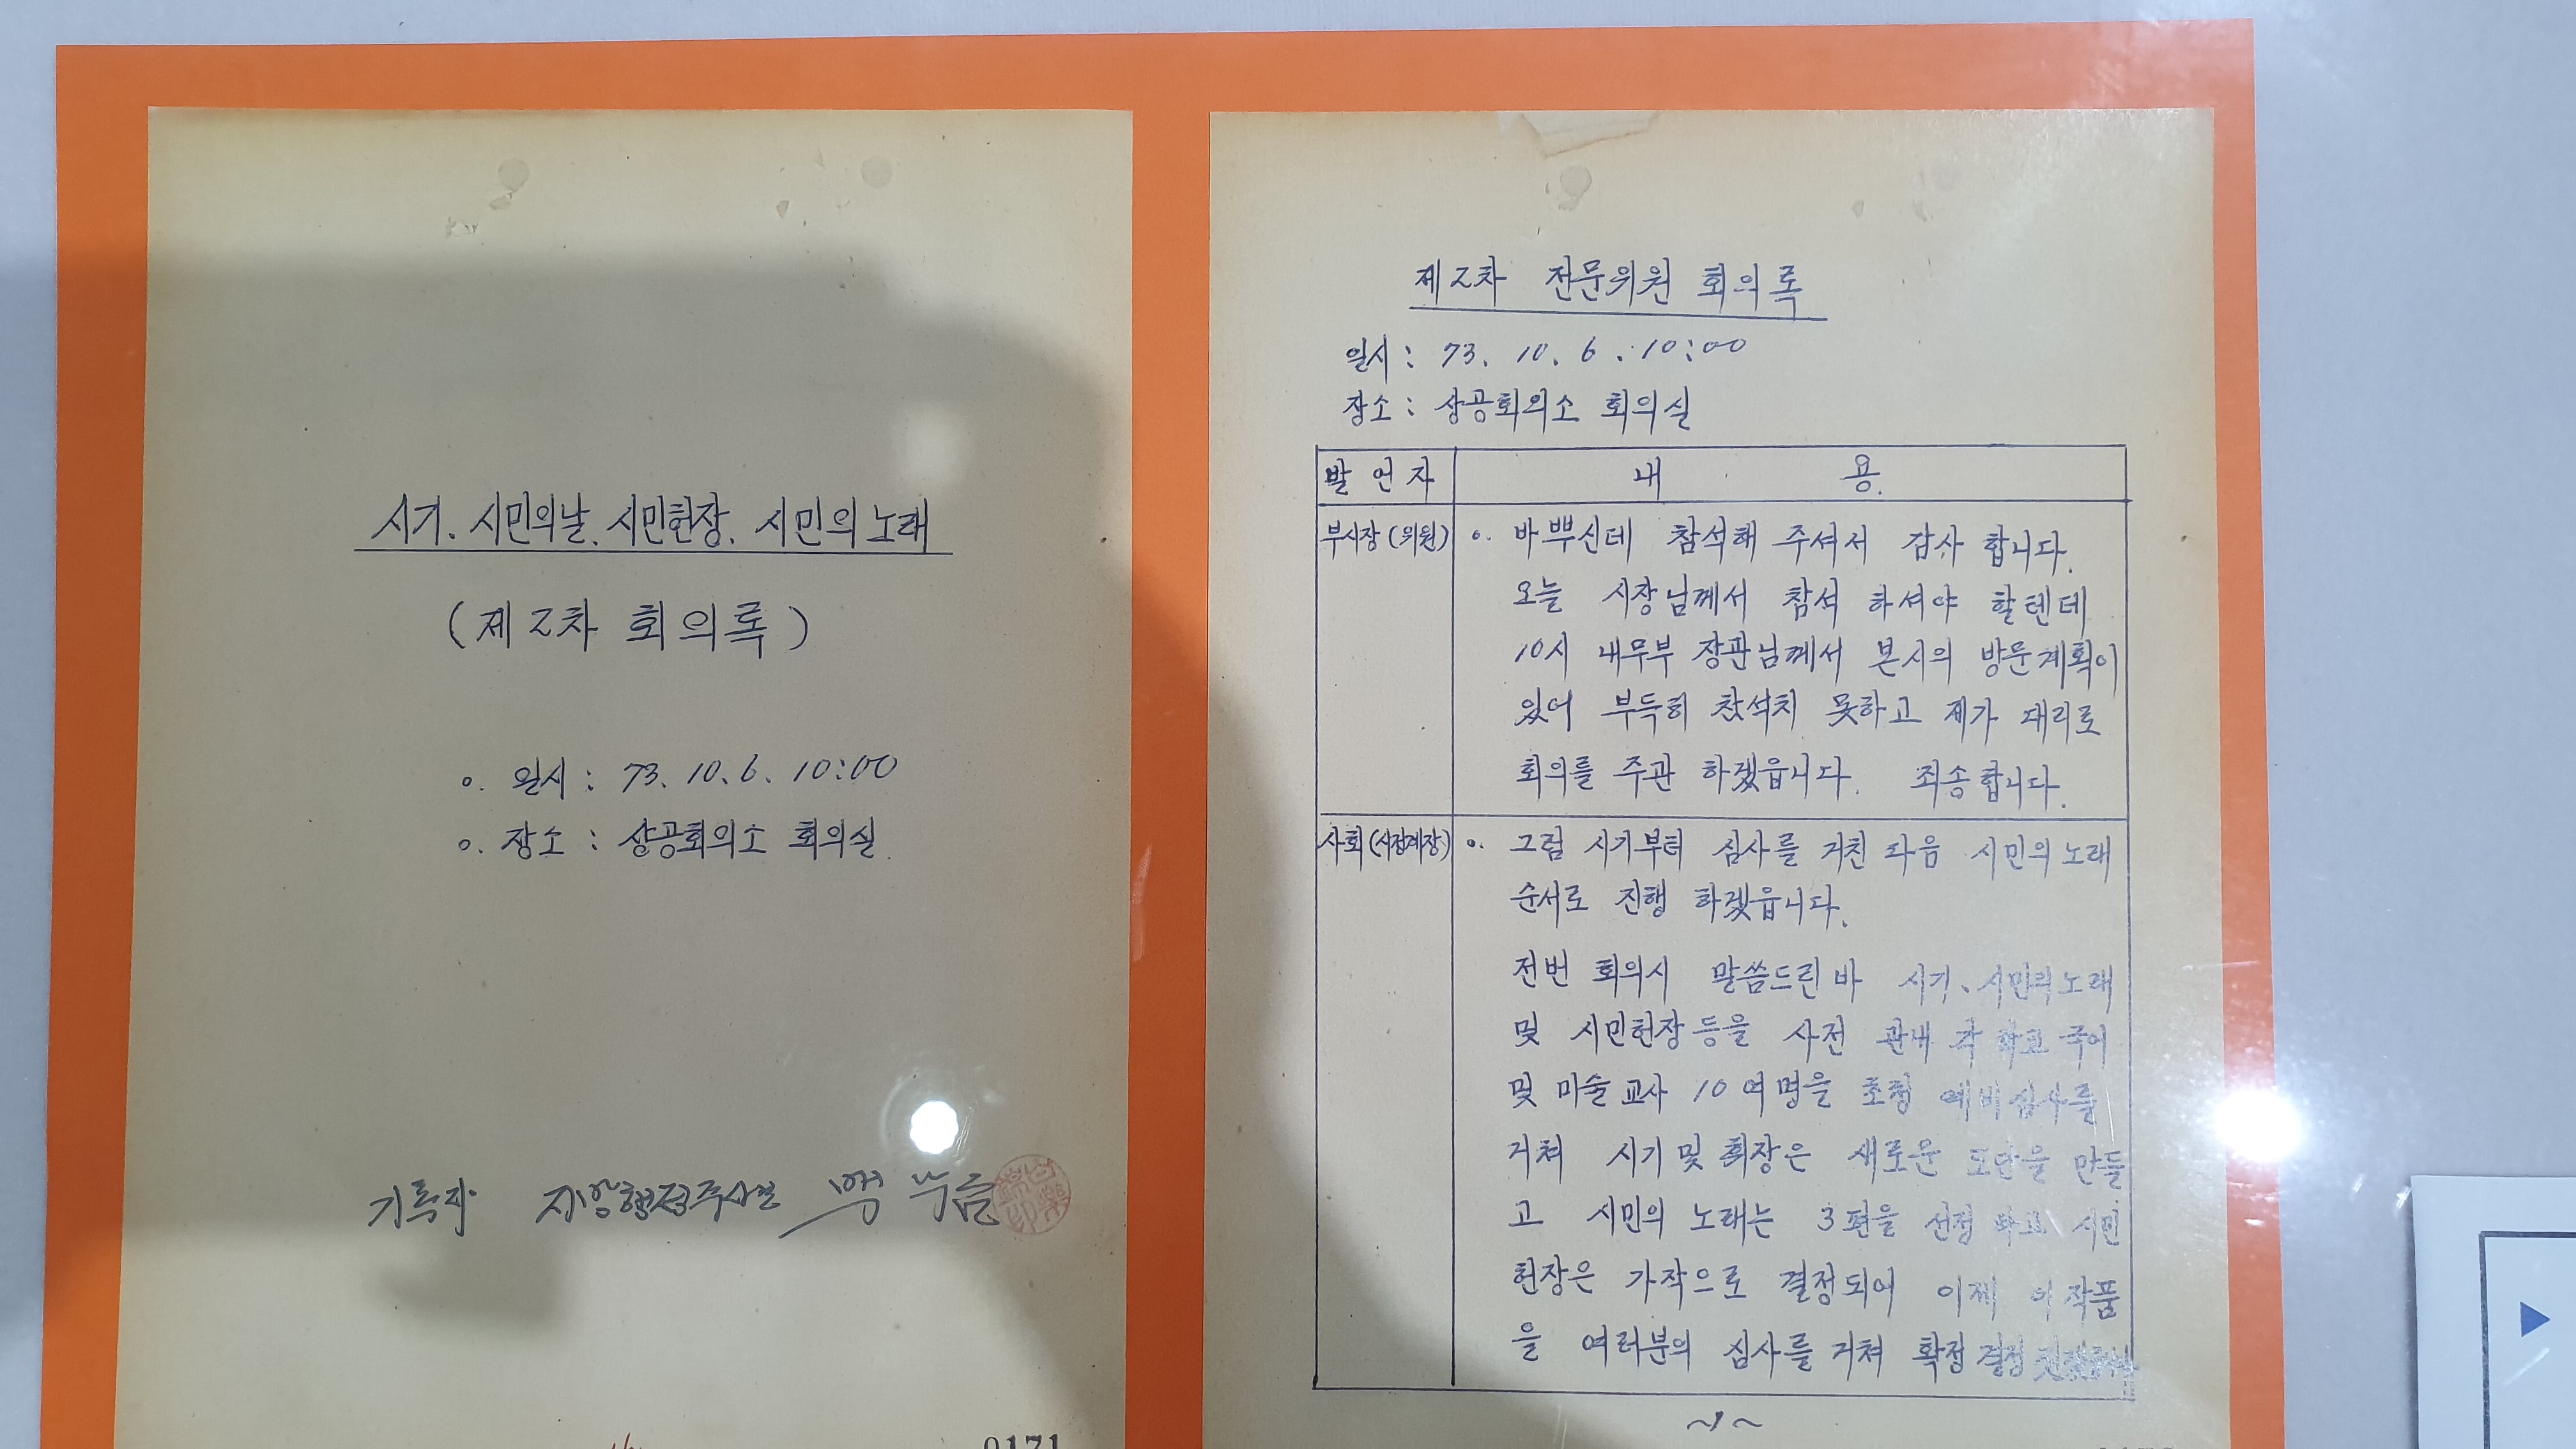 시기. 시민의날. 시민헌장. 시민의 노래
(제2차 회의록)
o. 일시 : 73. 10. 6. 10:00
o. 장소 : 상공회의소 회의실.
기록자 지방행정주사보
0171
제2차 전문위원 회의록
일시 : 73. 10. 6. 10:00
장소 : 상공회의소 회의실
발언자 내 용.
부시장(위원) o. 바쁘신데 참석해 주셔서 감사 합니다.
오늘 시장님께서 참석 하셔야 할텐데
10시 내무부 장관님께서 본시의 방문계획이
있어 부득히 참석치 못하고 제가 대리로
회의를 주관 하겠읍니다. 죄송합니다.
사회(시정계장) o. 그럼 시기부터 심사를 거친 다음 시민의 노래
순서로 진행 하겠읍니다.
전번 회의시 말씀드린 바 시기、시민의 노래
및 시민헌장 등을 사전 관내 각 학교 국어
및 미술교사 10여명을 초청 예비심사를
거쳐 시기 및 휘장은 새로운 도안을 만들
고 시민의 노래는 3편을 선정 하고 시민
헌장은 가작으로 결정되어 이제 이 작품
을 여러분의 심사를 거쳐 확정 결정
~1~